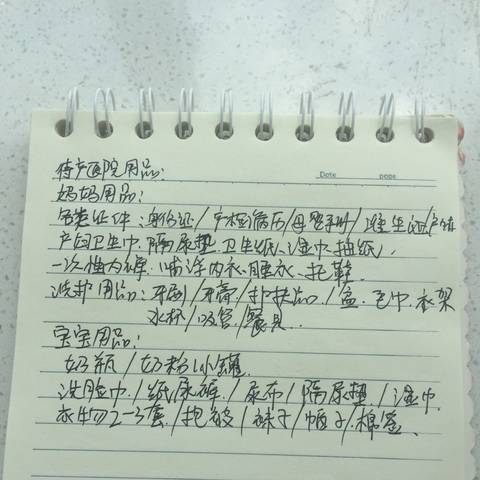 Date page
待产医院用品:
妈妈用品:
各类证件:身份证/产检病历/母婴手册/准生证/
产妇卫生巾.隔尿垫.卫生纸、湿巾.抽纸.
一次性内裤.哺乳内衣.睡衣.拖鞋.
洗护用品:牙刷/牙膏/护肤品/盆.毛巾.衣架
水杯/吸管/餐具.
宝宝用品:
奶瓶/奶粉小罐.
洗脸巾/纸尿裤/尿布/隔尿垫/湿巾
衣物2-3套/抱被/袜子/帽子.棉签.